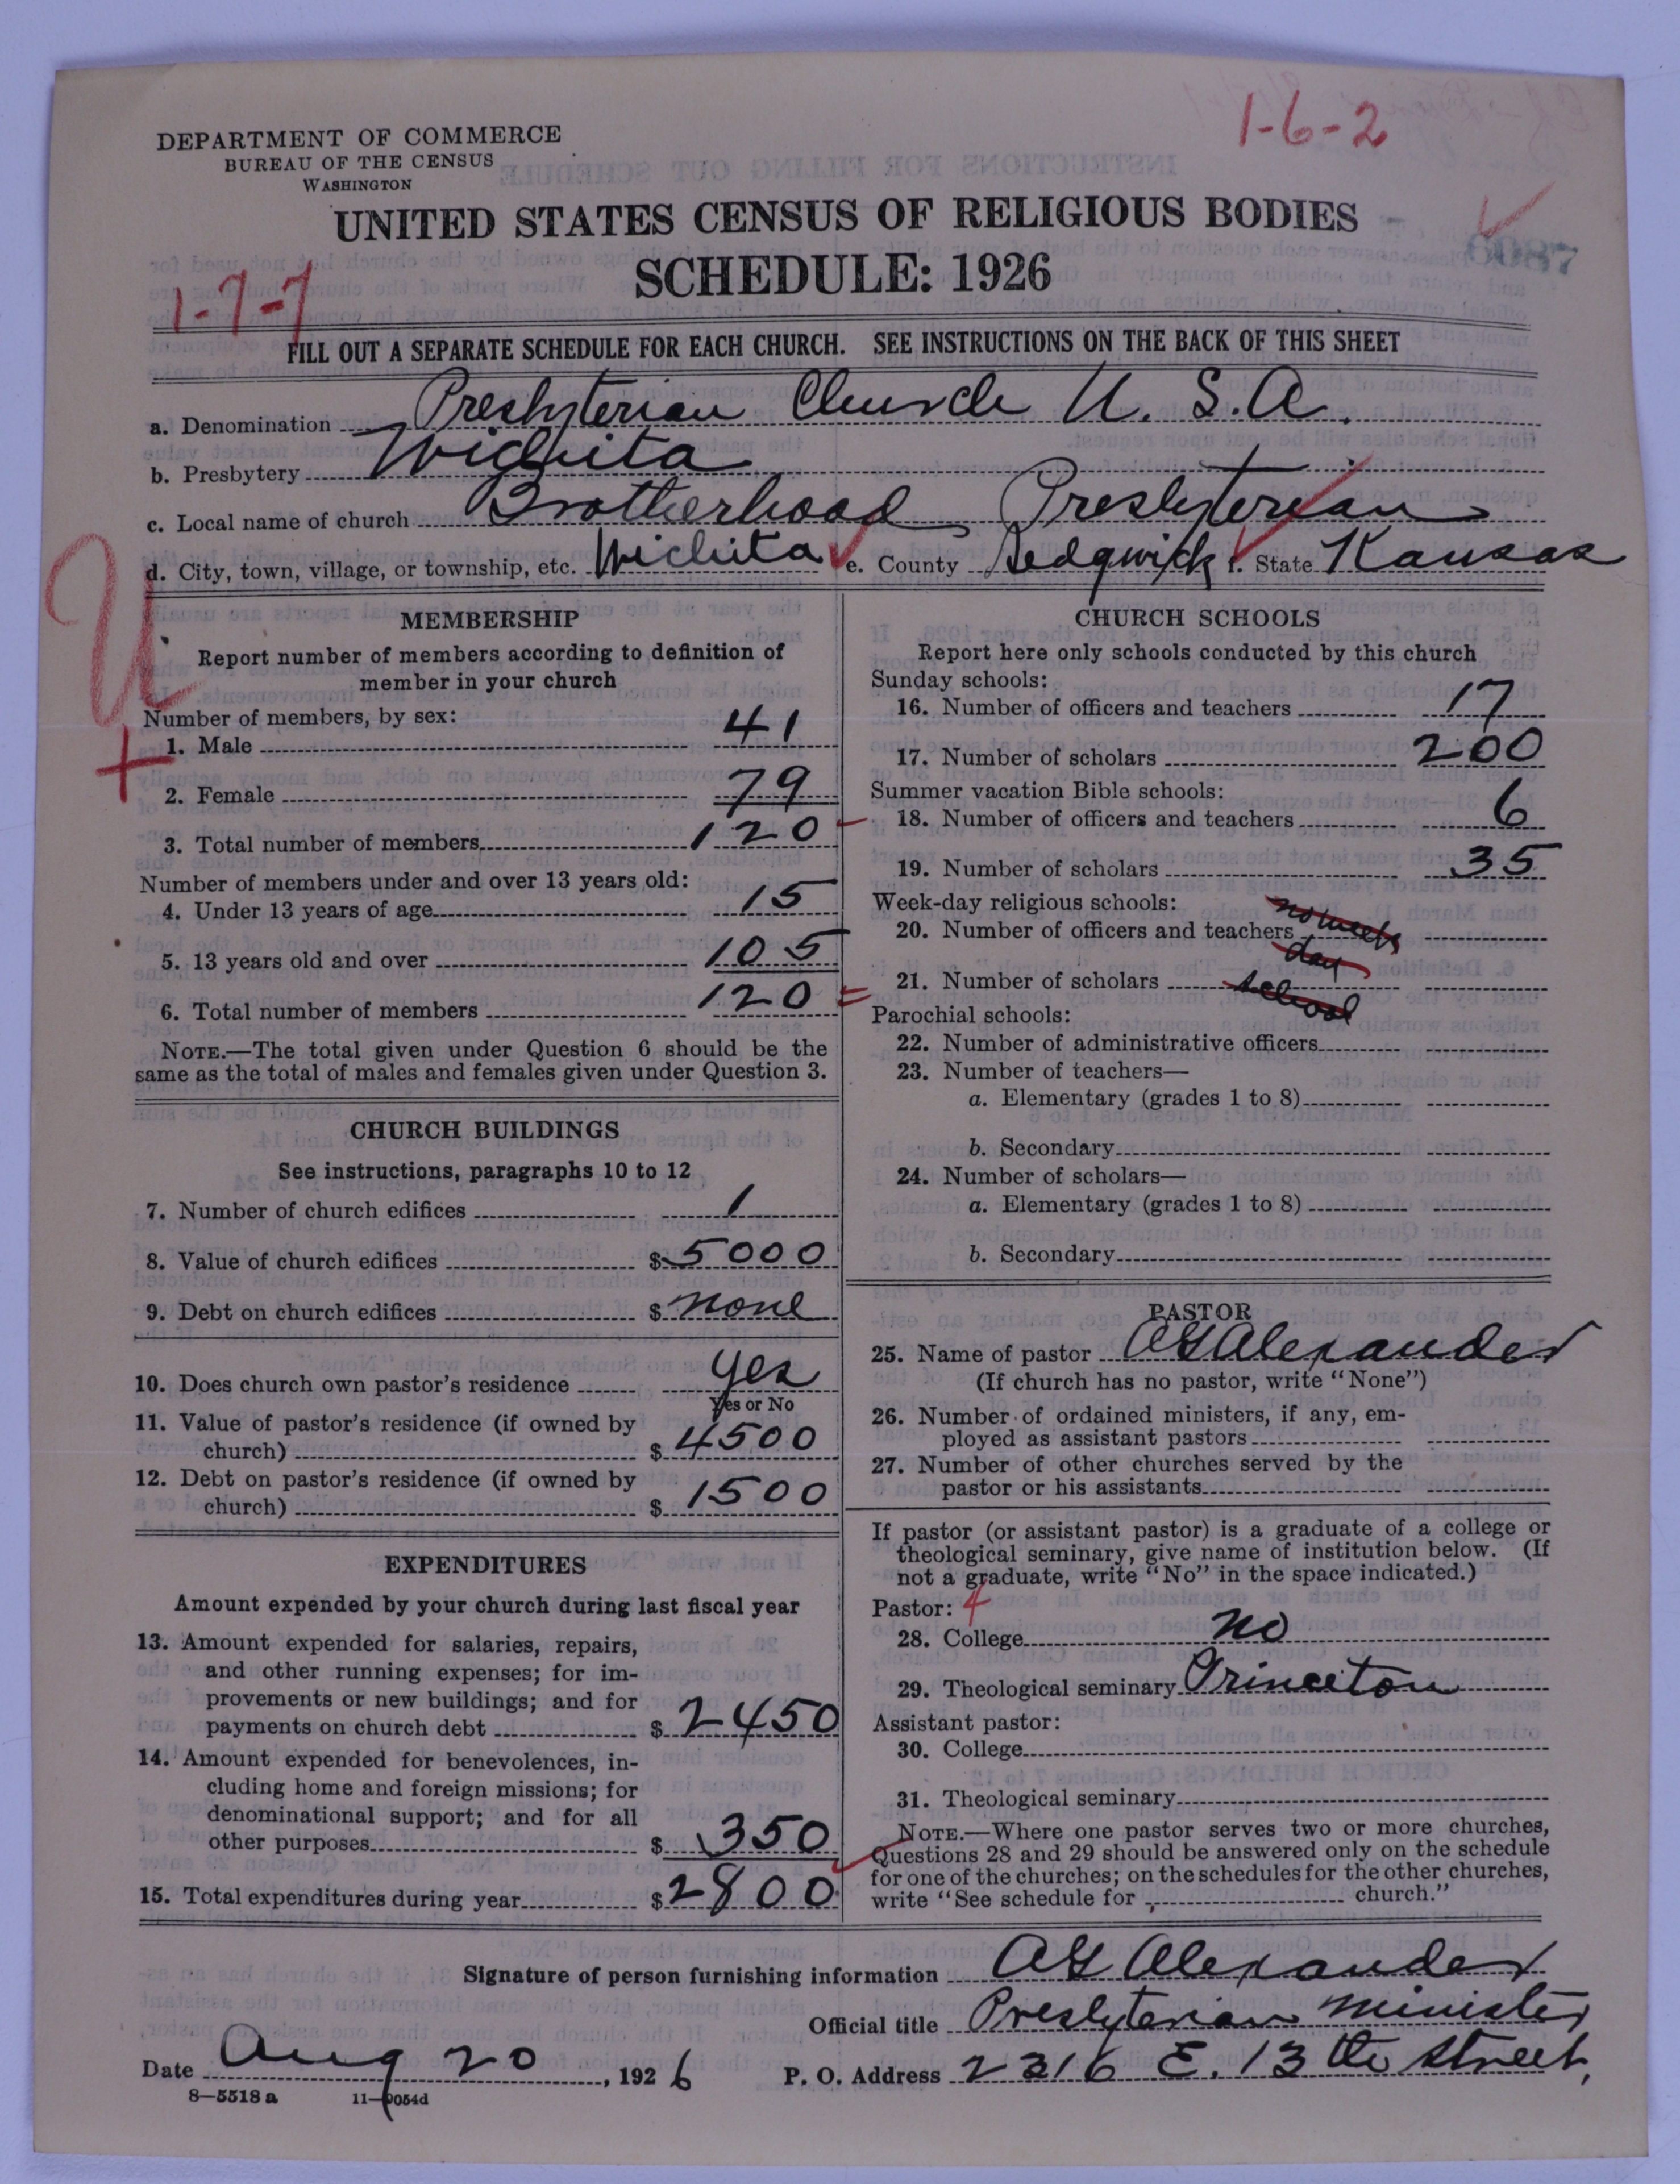 1-6-2
DEPARTMENT OF COMMERCE
BUREAU OF THE CENSUS
WASHINGTON
UNITED STATES CENSUS OF RELIGIOUS BODIES
6087
SCHEDULE: 1926
1-7-7
FILL OUT A SEPARATE SCHEDULE FOR EACH CHURCH. SEE INSTRUCTIONS ON THE BACK OF THIS SHEET
a. Denomination Presbyterian Church U. S. A.
b. Presbytery Wichita
c. Local name of church Brotherhood Presbyterian
d. City, town, village, or township, etc. Wichita e. County Sedgwick f. State Kansas
U
+
MEMBERSHIP
Report number of members according to definition of
member in your church
Number of members, by sex:
1. Male 41
2. Female 79
3. Total number of members 120
Number of members under and over 13 years old:
4. Under 13 years of age 15
5. 13 years old and over 105
6. Total number of members 120
NOTE.—The total given under Question 6 should be the
same as the total of males and females given under Question 3.
CHURCH BUILDINGS
See instructions, paragraphs 10 to 12
7. Number of church edifices 1
8. Value of church edifices $ 5000
9. Debt on church edifices $ none
10. Does church own pastor's residence yes
Yes or No
11. Value of pastor's residence (if owned by
church) $ 4500
12. Debt on pastor's residence (if owned by
church) $ 1500
EXPENDITURES
Amount expended by your church during last fiscal year
13. Amount expended for salaries, repairs,
and other running expenses; for im-
provements or new buildings; and for
payments on church debt $ 2450
14. Amount expended for benevolences, in-
cluding home and foreign missions; for
denominational support; and for all
other purposes $ 350
15. Total expenditures during year $ 2800
CHURCH SCHOOLS
Report here only schools conducted by this church
Sunday schools:
16. Number of officers and teachers 17
17. Number of scholars 200
Summer vacation Bible schools:
18. Number of officers and teachers 6
19. Number of scholars 35
Week-day religious schools:
20. Number of officers and teachers no week
day
21. Number of scholars school
Parochial schools:
22. Number of administrative officers
23. Number of teachers—
a. Elementary (grades 1 to 8)
b. Secondary
24. Number of scholars—
a. Elementary (grades 1 to 8)
b. Secondary
PASTOR
25. Name of pastor AG Alexander
(If church has no pastor, write "None")
26. Number of ordained ministers, if any, em-
ployed as assistant pastors
27. Number of other churches served by the
pastor or his assistants
If pastor (or assistant pastor) is a graduate of a college or
theological seminary, give name of institution below. (If
not a graduate, write "No" in the space indicated.)
Pastor: 4
28. College no
29. Theological seminary Princeton
Assistant pastor:
30. College
31. Theological seminary
NOTE.—Where one pastor serves two or more churches,
Questions 28 and 29 should be answered only on the schedule
for one of the churches; on the schedules for the other churches,
write "See schedule for church."
Signature of person furnishing information AG Alexander
Official title Presbyterian minister
Date Aug 20, 1926 P. O. Address 2316 E. 13th Street,
8-5518 a 11-9054d